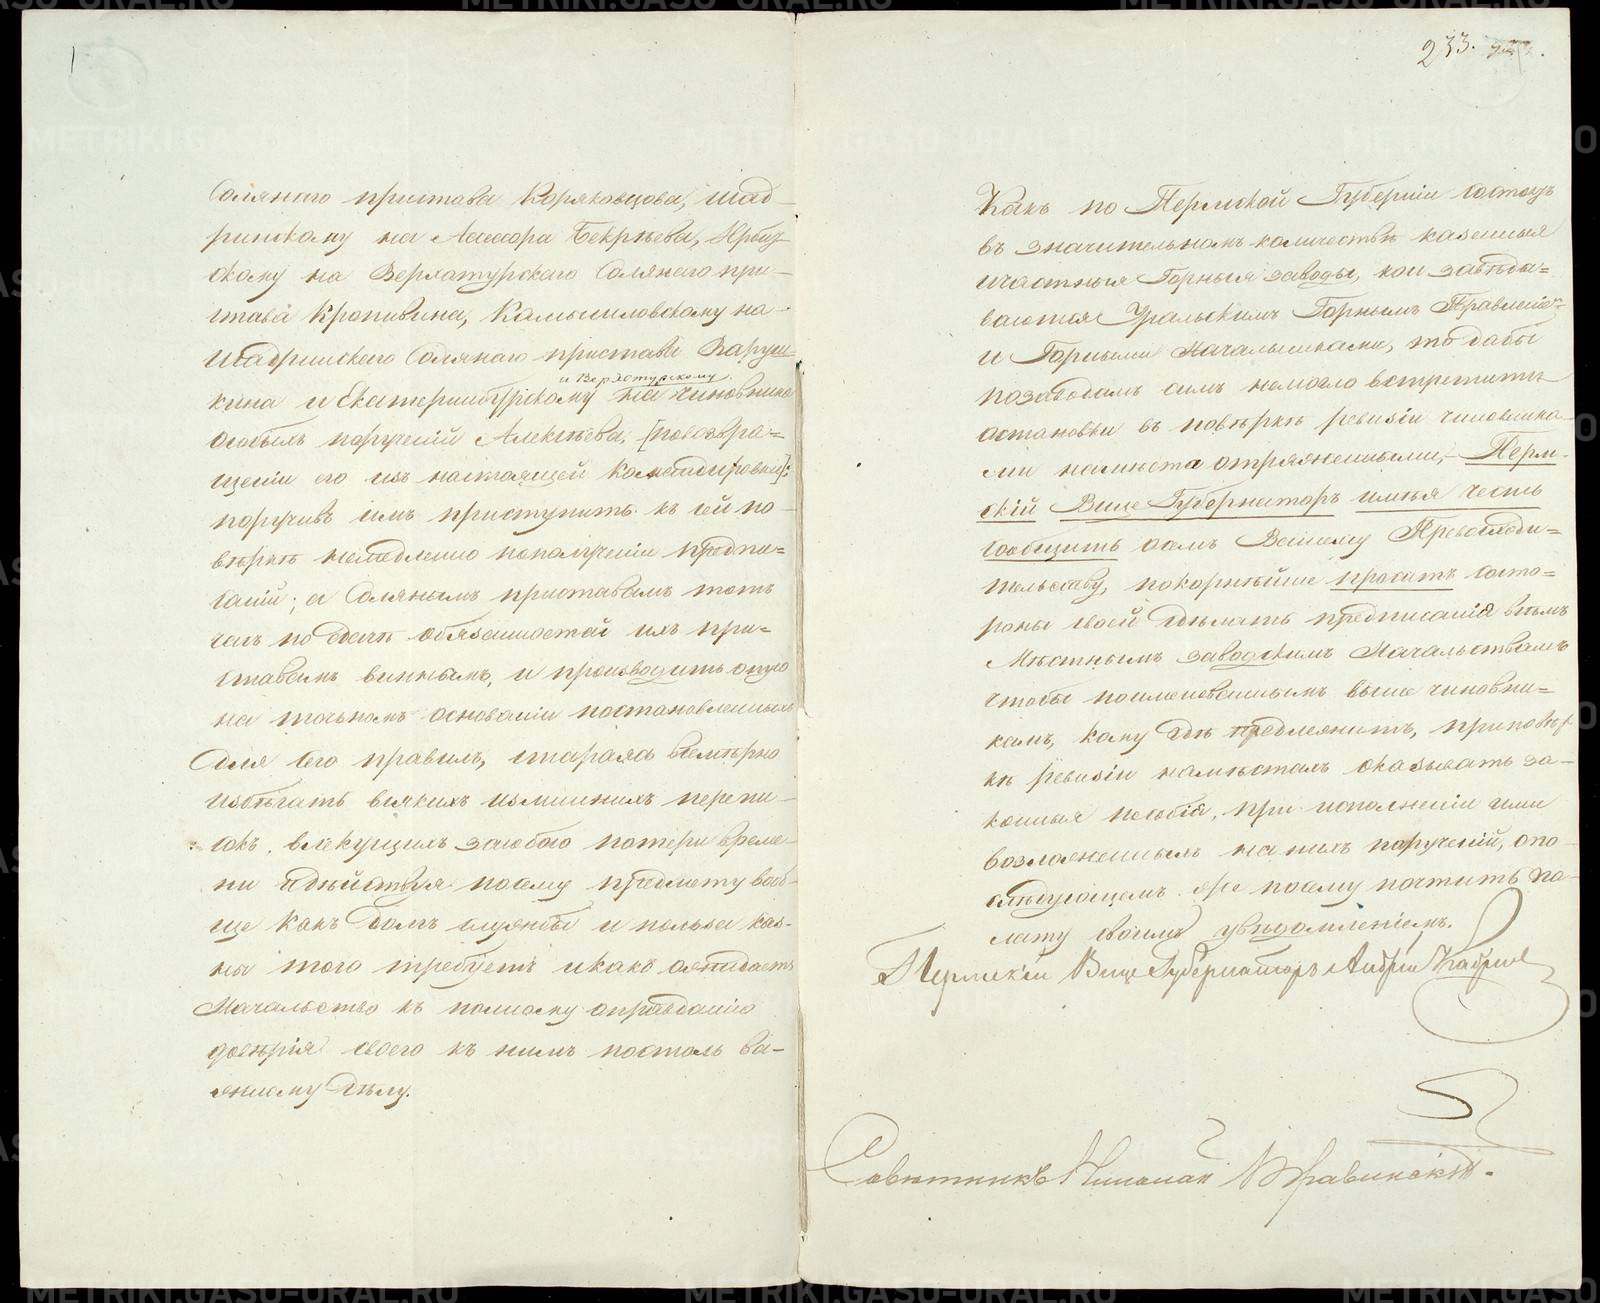 Солянаго пристава Коряковцова, Шад-
ринскому на Ассесора Бекрѣева, Ирбит-
скому на Верхотурскаго Солянаго при-
става Кропивина, Камышловскому на
Шадринскаго Солянаго пристава Заруш-
и Верхотурскому
кина и Екатеринбургскому на чиновника
особыхъ порученій Алексѣева, [повозвра-
щеніи его изъ настоящей командировки];
поручивъ имъ приступить къ сей по-
вѣркѣ немедленно пополученіи предпи-
саній; а Солянымъ приставамъ тотъ
часъ по сдачѣ обязанностей ихъ при-
ставамъ виннымъ, и производить оную
на точномъ основаніи постановленныхъ
для сего правилъ, стараясь всемѣрно
избѣгать всякихъ излишнихъ перепи-
сокъ, влекущихъ засобою потери време-
ни и дѣйствуя посему предмету вооб-
ще какъ долгъ службы и польза каз-
ны того требуетъ икакъ ожидаетъ
Начальство къ полному оправданію
довѣрія своего къ нимъ постоль ва-
жному дѣлу.
233.
Какъ по Пермской Губерніи состоятъ
въ значительномъ количествѣ казенныя
ичастныя Горныя заводы, кои завѣды-
ваются Уральскимъ Горнымъ Правленіемъ
и Горными Начальниками, то дабы
позаводамъ симъ немогло встретиться
остановки въ повѣркѣ ревизіи чиновника-
ми наместа отряженными, Перм-
скій Вице Губернаторъ имѣя честь
сообщить осемъ Вашему Превосходи-
тельству, покорнѣйше проситъ состо-
роны своей сдѣлать предписанія всѣмъ
Мѣстнымъ заводскимъ Начальствамъ
чтобы поименованнымъ выше чиновни-
камъ, кому гдѣ предлежитъ, приповѣр-
кѣ ревизіи наместахъ оказывать за-
конныя пособія, при исполненіи ими
возложенныхъ наних порученій, опо-
слѣдующемъ же посему почтить Па-
лату своимъ увѣдомленіемъ.
Пермскій Вице Губернаторъ Андрей
Совѣтникъ Николай